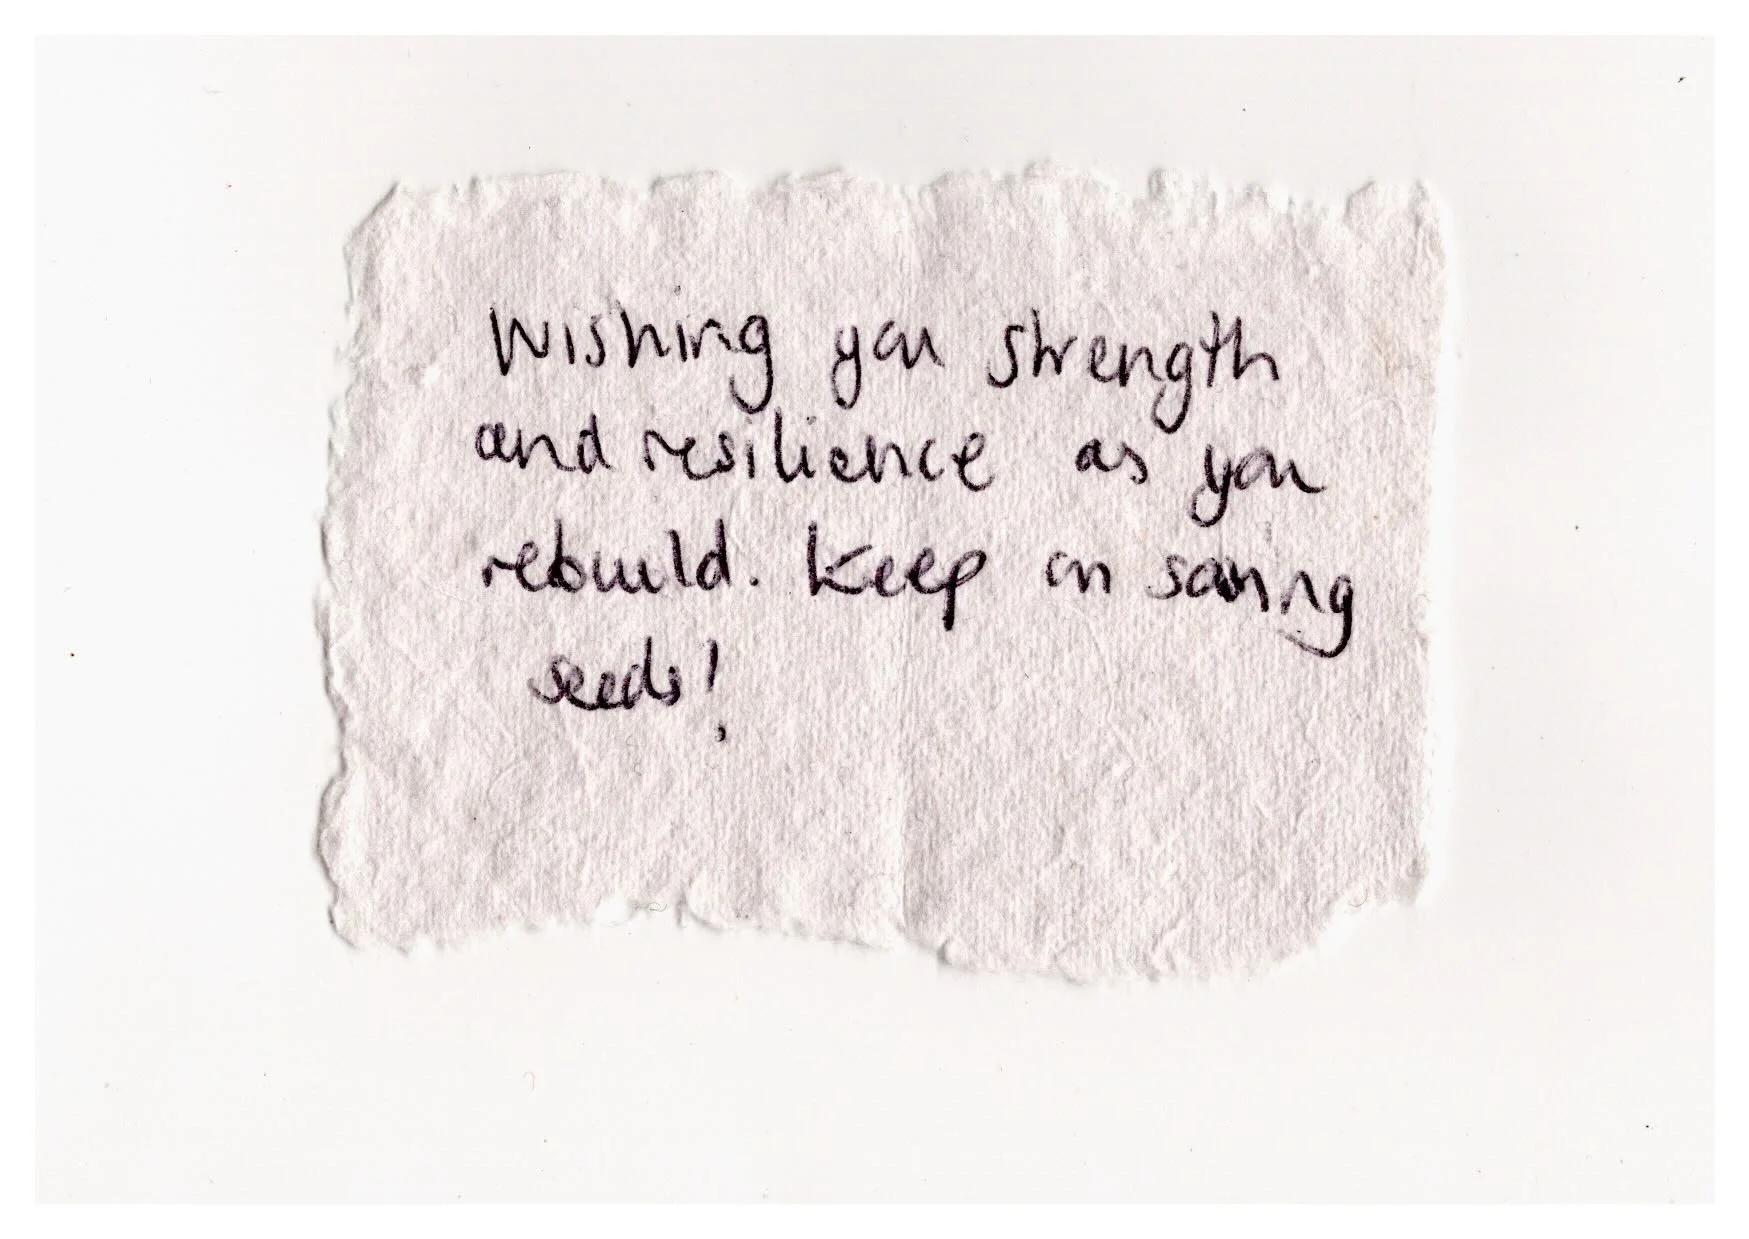 Wishing you strength
and resilience as you
rebuild. Keep on saving
seeds!